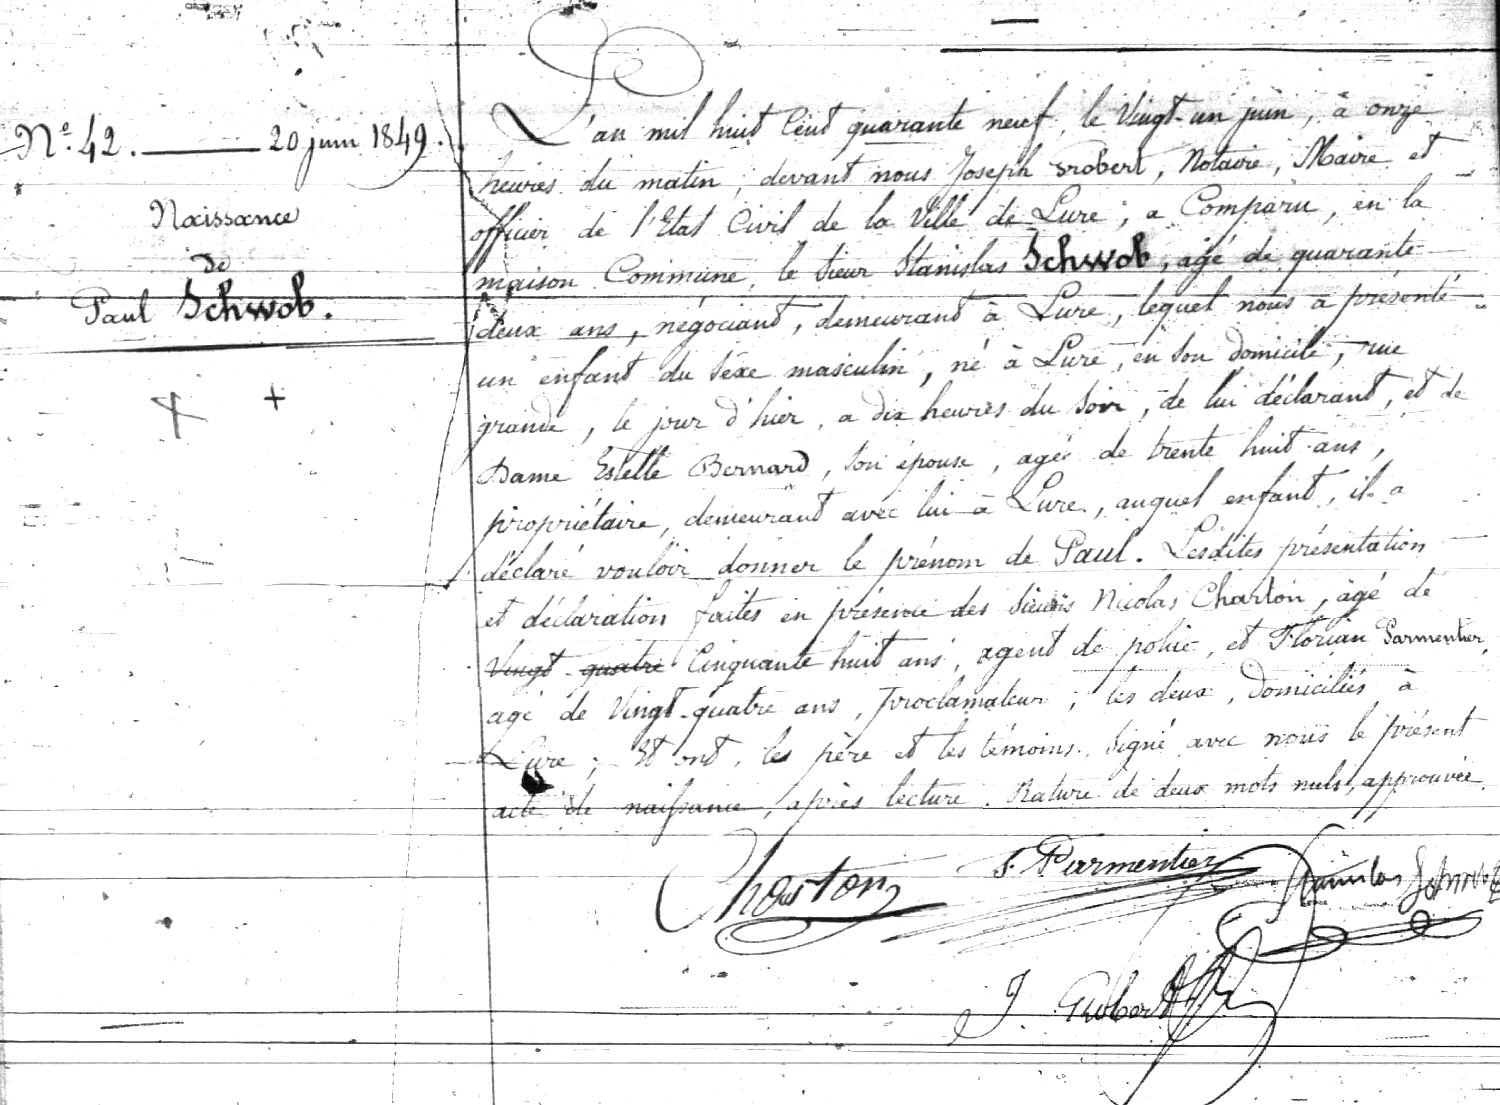 N.º 42. 20 juin 1849.
Naissance
de
Paul Schwob.
L'an mil huit Cent quarante neuf, le Vingt-un juin, à onze
heures du matin, devant nous Joseph Robert, Notaire, Maire et
officier de l'Etat Civil de la Ville de Lure; a Comparu, en la
maison Commune, le Sieur Stanislas Schwob, agé de quarante
deux ans, négociant, demeurant à Lure, lequel nous a présenté
un enfant du Sexe masculin, né à Lure, en Son domicile, rue
grande, le jour d'hier, a dix heures du Soir, de lui déclarant, et de
Dame Estelle Bernard, Son épouse, agée de trente huit ans,
propriétaire, demeurant avec lui à Lure, auquel enfant, il a
déclaré vouloir donner le prénom de Paul. Lesdites présentation
et déclaration faites en présence des Sieurs Nicolas Charton, agé de
Vingt quatre Cinquante huit ans, agent de police, et Florian Parmentier,
agé de Vingt-quatre ans, proclamateur; les deux, Domiciliés à
Lure; Et ont, les père et les témoins, Signé avec nous le présent
acte de naissance, après lecture. Rature de deux mots nuls, approuvée.
Charton F. Parmentier Stanislas Schwob
J. Robert